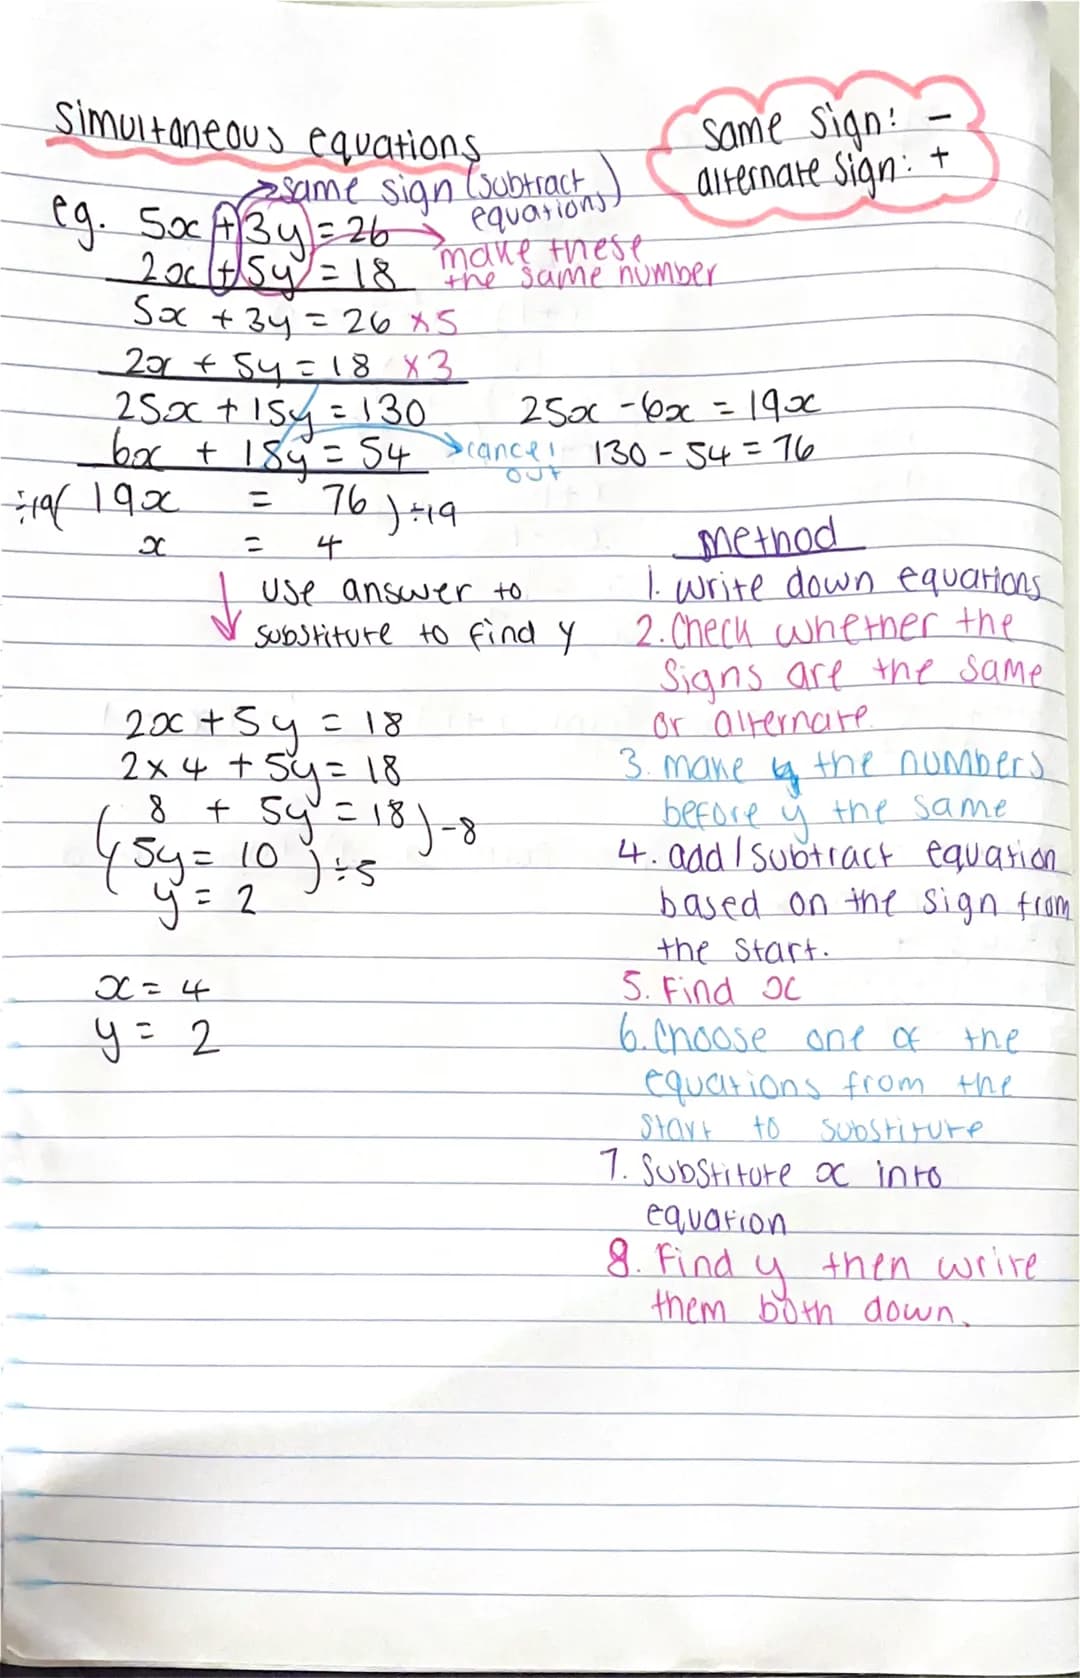 Simultaneous equations
Same Sign: -
alternate Sign: +
same sign (subtract equations)
eg. 5x + 3y = 26
make these the same number
2x + 5y = 18
5x + 3y = 26 x5
2x + 5y = 18 x3
25x + 15y = 130
25x - 6x = 19x
6x + 18y = 54
cancel out
130 - 54 = 76
÷19( 19x = 76 ) ÷19
x = 4
use answer to
substitute to find y
2x + 5y = 18
2 x 4 + 5y = 18
8 + 5y = 18 ) -8
( 5y = 10 ) ÷5
y = 2
x = 4
y = 2
method
1. write down equations
2. Check whether the
Signs are the same
or alternate.
3. make the numbers
before y the same
4. add / subtract equation
based on the sign from
the start.
5. Find x
6. Choose one of the
equations from the
start to substitute
7. Substitute x into
equation
8. Find y then write
them both down.